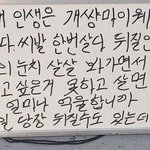 인생은 개상마이웨
다. 씨발 한번살다 뒤질인
의 눈치 살살 봐가면서
고싶은거 못하고 살면
얼마나 억울합니까
일 당장 뒤질수도 있는데